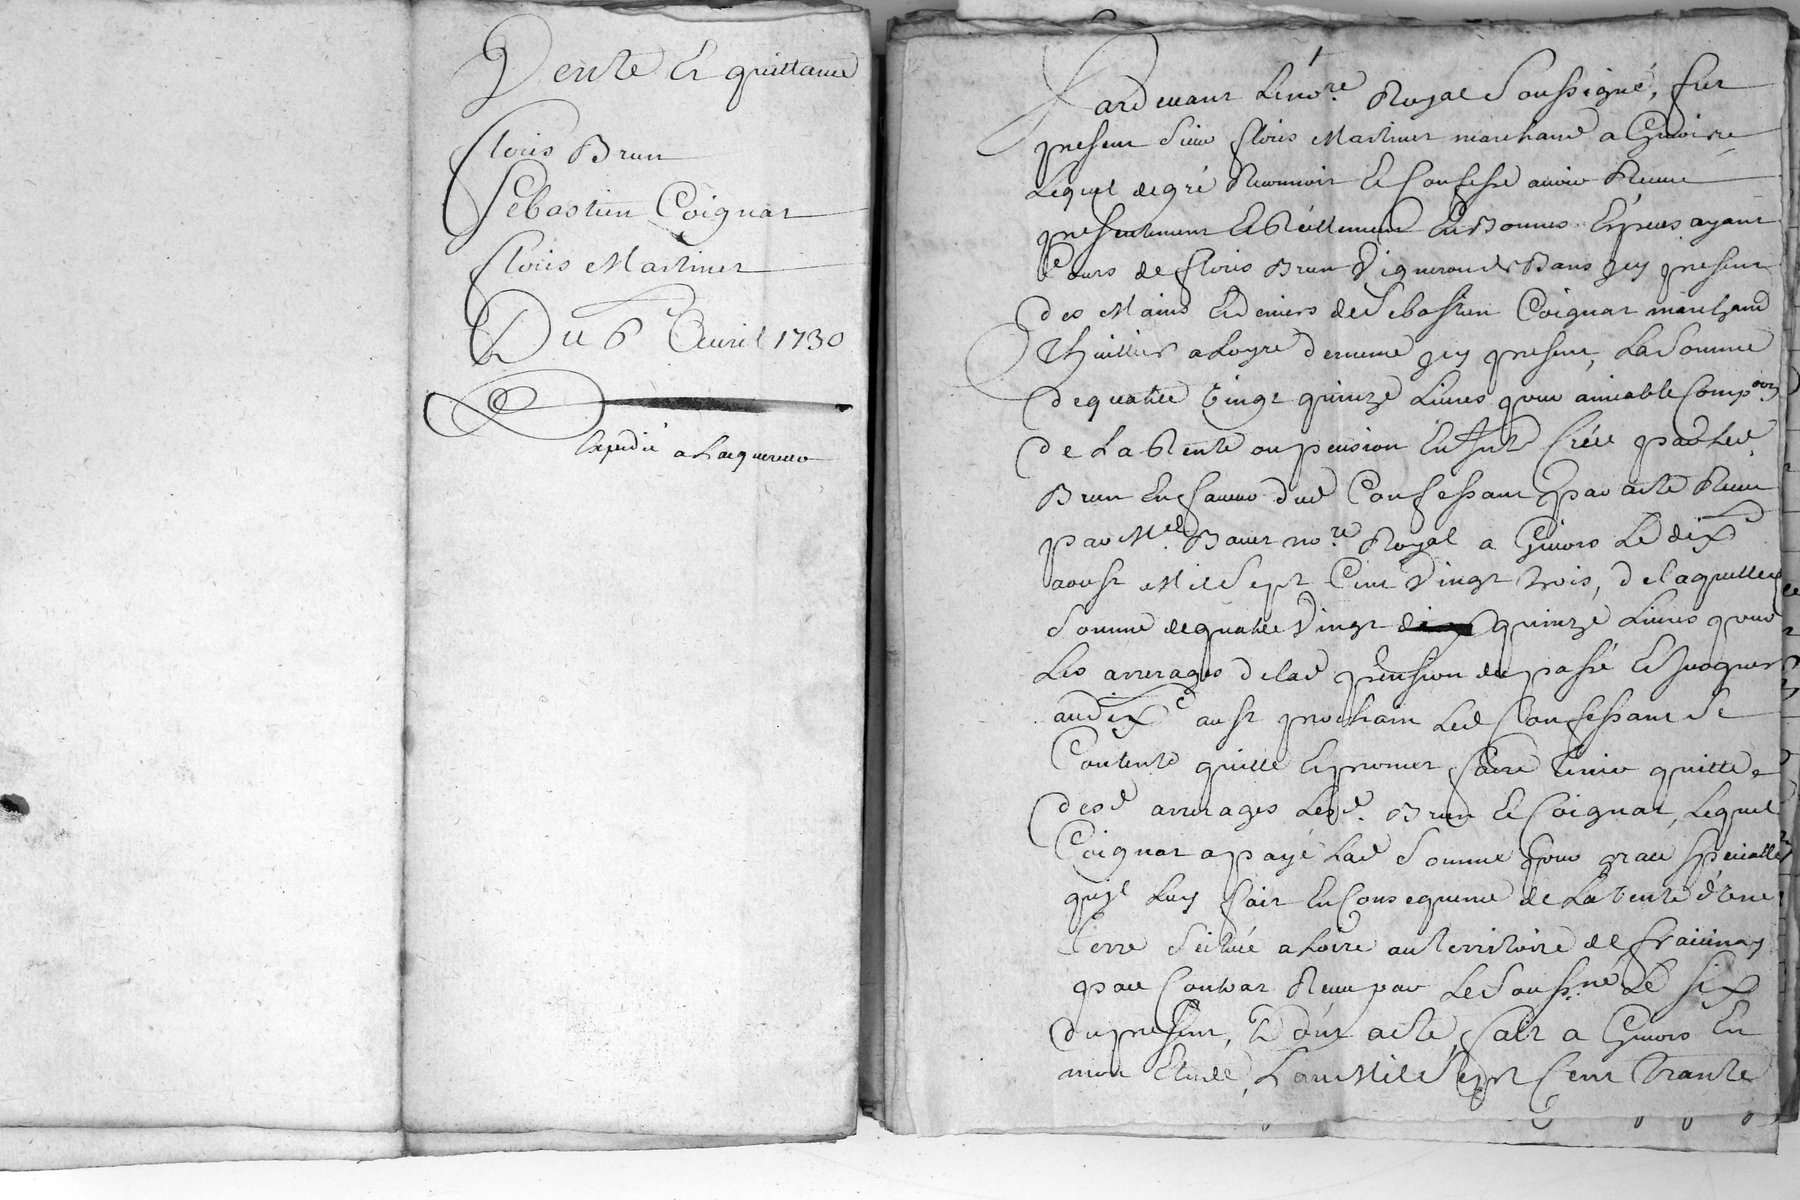 Vente Et quittance
Floris Brun
Sebastien Coignat
Floris Martinet
Du 6e Avril 1730
Expedié a Lacquereur
Pardevant Le no.re Royal Soussigné, fut
present Sieur floris Martinet marchand a Givors
Lequel de gré Reconnoit Et Confesse avoir Receu
presentement Et Réellement En Bonnes Especes ayant
Cours de floris Brun Vigneron de Bans icy present
des Mains Et deniers de Sebastien Coignat marchand
Thuillier a Loyre dememe icy present, La Somme
de quatre vingt quinze Livres pour amiable Comp.on
de La Rente ou pension En fut Créée par Led.
Brun En faveur dud Confessant par acte Receu
par Me. Bauer no.re Royal a Givors Le dixe
aoust Mil Sept Cent Vingt trois, de laquelle
Somme de quatre Vingt quinze Livres pour
Les arrerages de lad pension du passé Et Jusques
au dixe aust prochain Led Confessant Se
Contente quitte Et promet faire tenir quitte
desd arrerages Lesd. Brun Et Coignat, Lequel
Coignat a payé Lad Somme pour grace specialle
quil Luy fait En Consequence de La vente d'une
terre Scituée a Loire au territoire de
par Contrat Receu par Le Soussne Le Six
du present, Dont acte, fait a Givors En
mon Etude, L'an Mil Sept Cent Trante